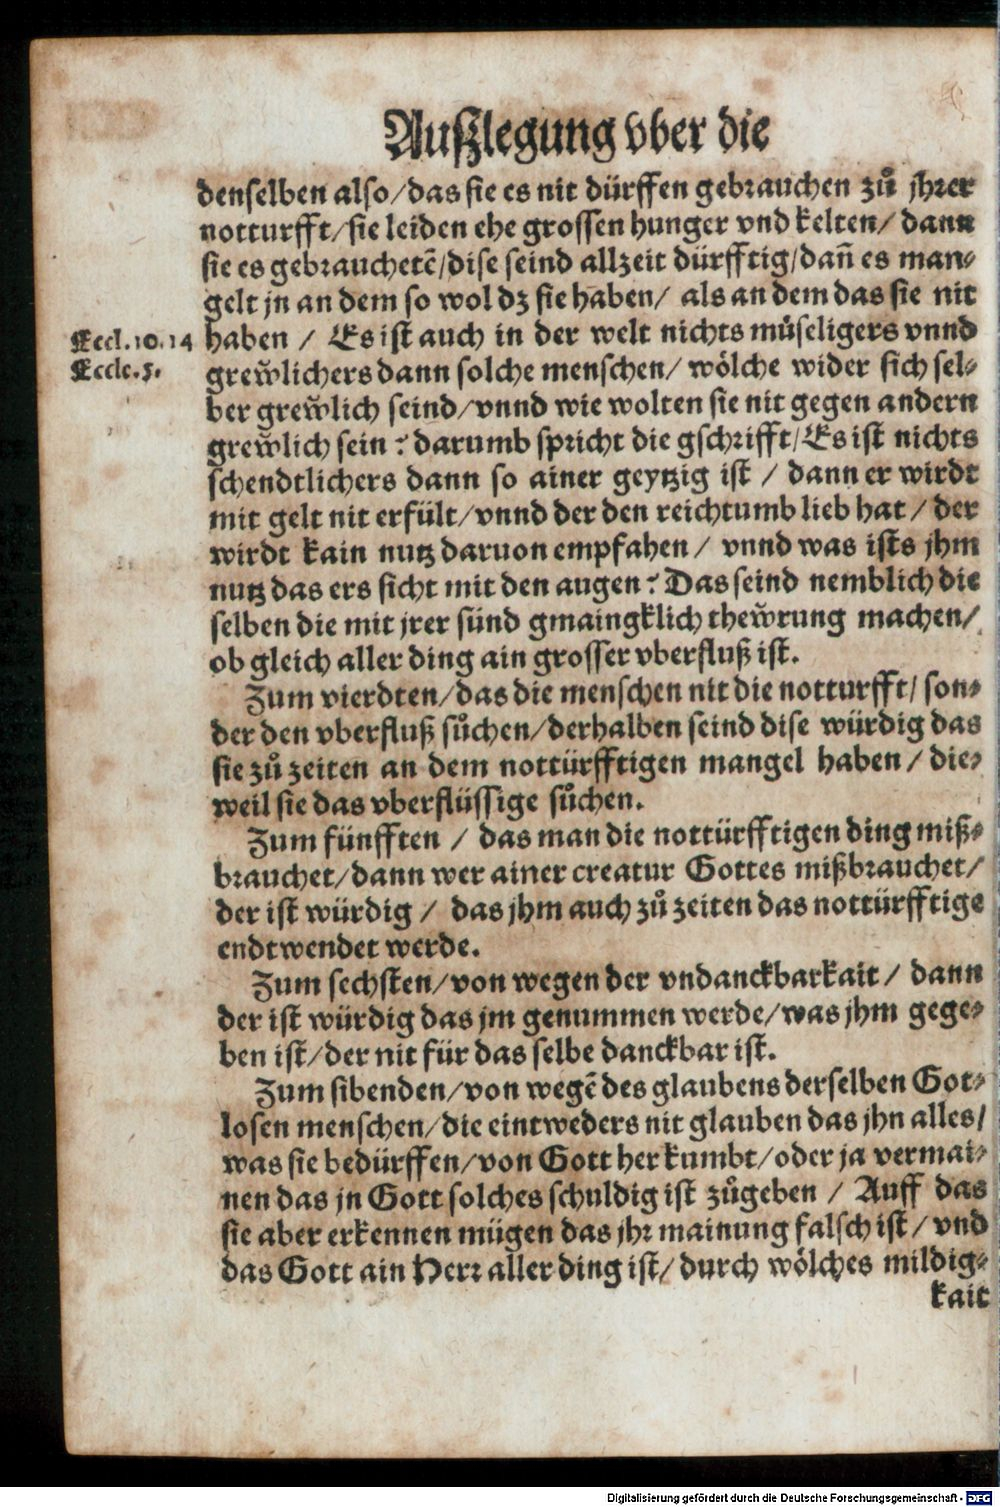 Außlegung vber die
denselben also/das sie es nit dürffen gebrauchen zů jhrer
notturfft/sie leiden ehe grossen hunger vnd kelten/ dann
sie es gebrauchetē/dise seind allzeit dürfftig/dañ es man⸗
gelt jn an dem so wol dz sie haben/ als an dem das sie nit
Eccl.10.14 haben / Es ist auch in der welt nichts můseligers vnnd
Eccle.5. grew̆lichers dann solche menschen/ wölche wider sich sel⸗
ber grew̆lich seind/vnnd wie wolten sie nit gegen andern
grew̆lich sein? darumb spricht die gschrifft/Es ist nichts
schendtlichers dann so ainer geytzig ist / dann er wirdt
mit gelt nit erfült/vnnd der den reichtumb lieb hat / der
wirdt kain nutz daruon empfahen/ vnnd was ists jhm
nutz das ers sicht mit den augen? Das seind nemblich die
selben die mit jrer sünd gmaingklich thew̆rung machen/
ob gleich aller ding ain grosser vberfluß ist.
Zum vierdten/das die menschen nit die notturfft/ son⸗
der den vberfluß sůchen/derhalben seind dise würdig das
sie zů zeiten an dem nottürfftigen mangel haben/ die⸗
weil sie das vberflüssige sůchen.
Zum fünfften / das man die nottürfftigen ding miß⸗
brauchet/dann wer ainer creatur Gottes mißbrauchet/
der ist würdig / das jhm auch zů zeiten das nottürfftige
endtwendet werde.
Zum sechsten/von wegen der vndanckbarkait / dann
der ist würdig das jm genummen werde/was jhm gege⸗
ben ist/der nit für das selbe danckbar ist.
Zum sibenden/von wegē des glaubens derselben Got⸗
losen menschen/die eintweders nit glauben das jhn alles/
was sie bedürffen/von Gott her kumbt/oder ja vermai⸗
nen das jn Gott solches schuldig ist zůgeben / Auff das
sie aber erkennen mügen das jhr mainung falsch ist/ vnd
das Gott ain Herr aller ding ist/ durch wölches mildig⸗
kait
Digitalisierung gefördert durch die Deutsche Forschungsgemeinschaft - DFG